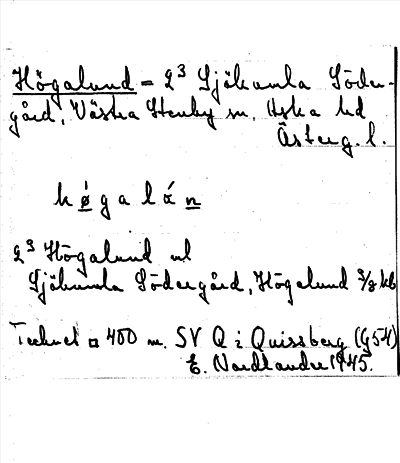 Högalund = 2³ Sjökumla Söder-
gård, Västra Stenby sn, Aska hd
Österg. l.
hø̀galán
2³ Högalund ul
Sjökumla Södergård, Högalund kb
Tecknet ¤ 400 m. SV Q i Quissberg (G54)
E. Nordlander 1945.